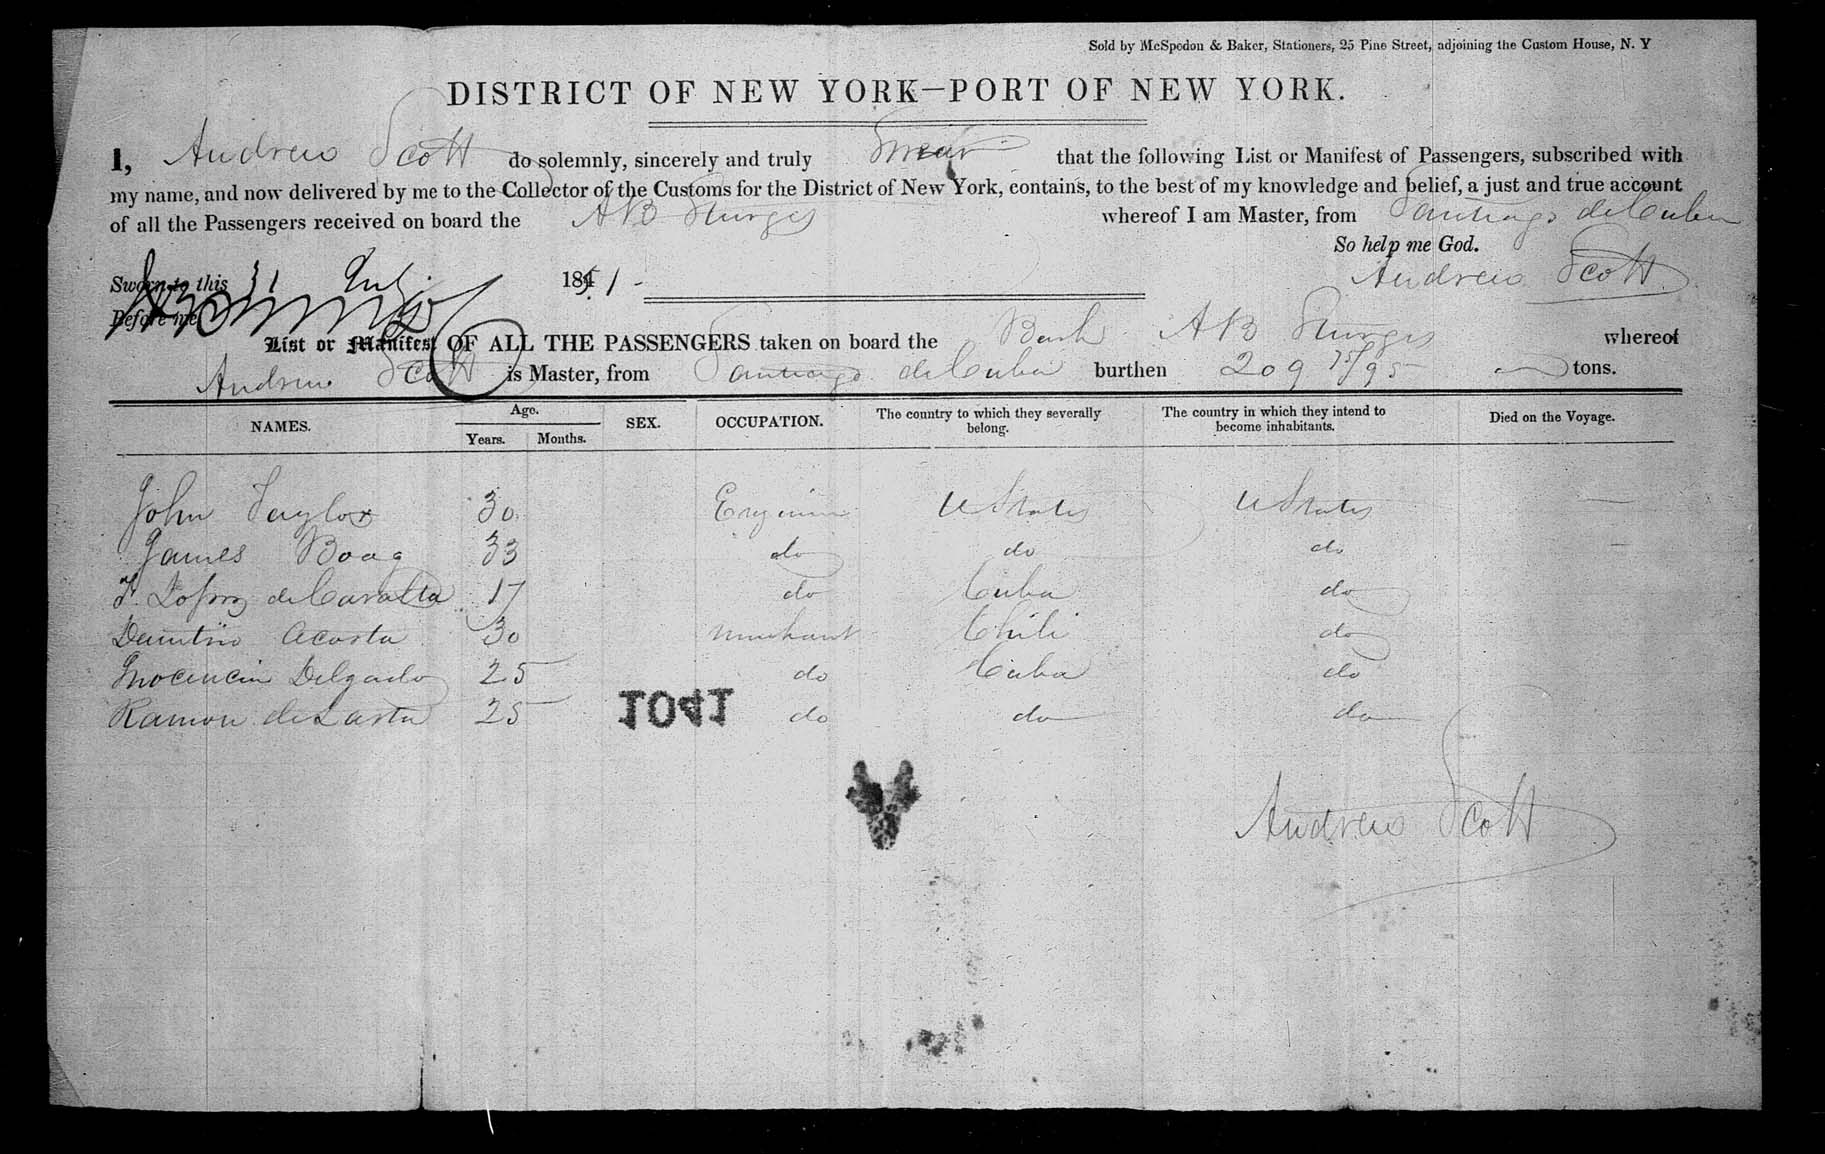 Sold by McSpedon & Baker, Stationers, 25 Pine Street, adjoining the Custom House, N. Y
DISTRICT OF NEW YORK—PORT OF NEW YORK.
I, Andrew Scott do solemnly, sincerely and truly Swear that the following List or Manifest of Passengers, subscribed with
my name, and now delivered by me to the Collector of the Customs for the District of New York, contains, to the best of my knowledge and belief, a just and true account
of all the Passengers received on board the AB Sturges whereof I am Master, from Santiago de Cuba
So help me God.
Sworn to this 31 July 1851 Andrew Scott
Before me
List or Manifest OF ALL THE PASSENGERS taken on board the Bark AB Sturges whereof
Andrew Scott is Master, from Santiago de Cuba burthen 209 75/95 tons.
NAMES. Age. Years. Months. SEX. OCCUPATION. The country to which they severally belong. The country in which they intend to become inhabitants. Died on the Voyage.
John Taylor 30 Engineer U States U States —
James Boag 33 do do do —
F. Lopez de Cavalta 17 do Cuba do
Demitrio Acosta 30 merchant Chili do
Inocencin Delgado 25 do Cuba do
Ramon de Lasta 25 do do do
1041
Andrew Scott